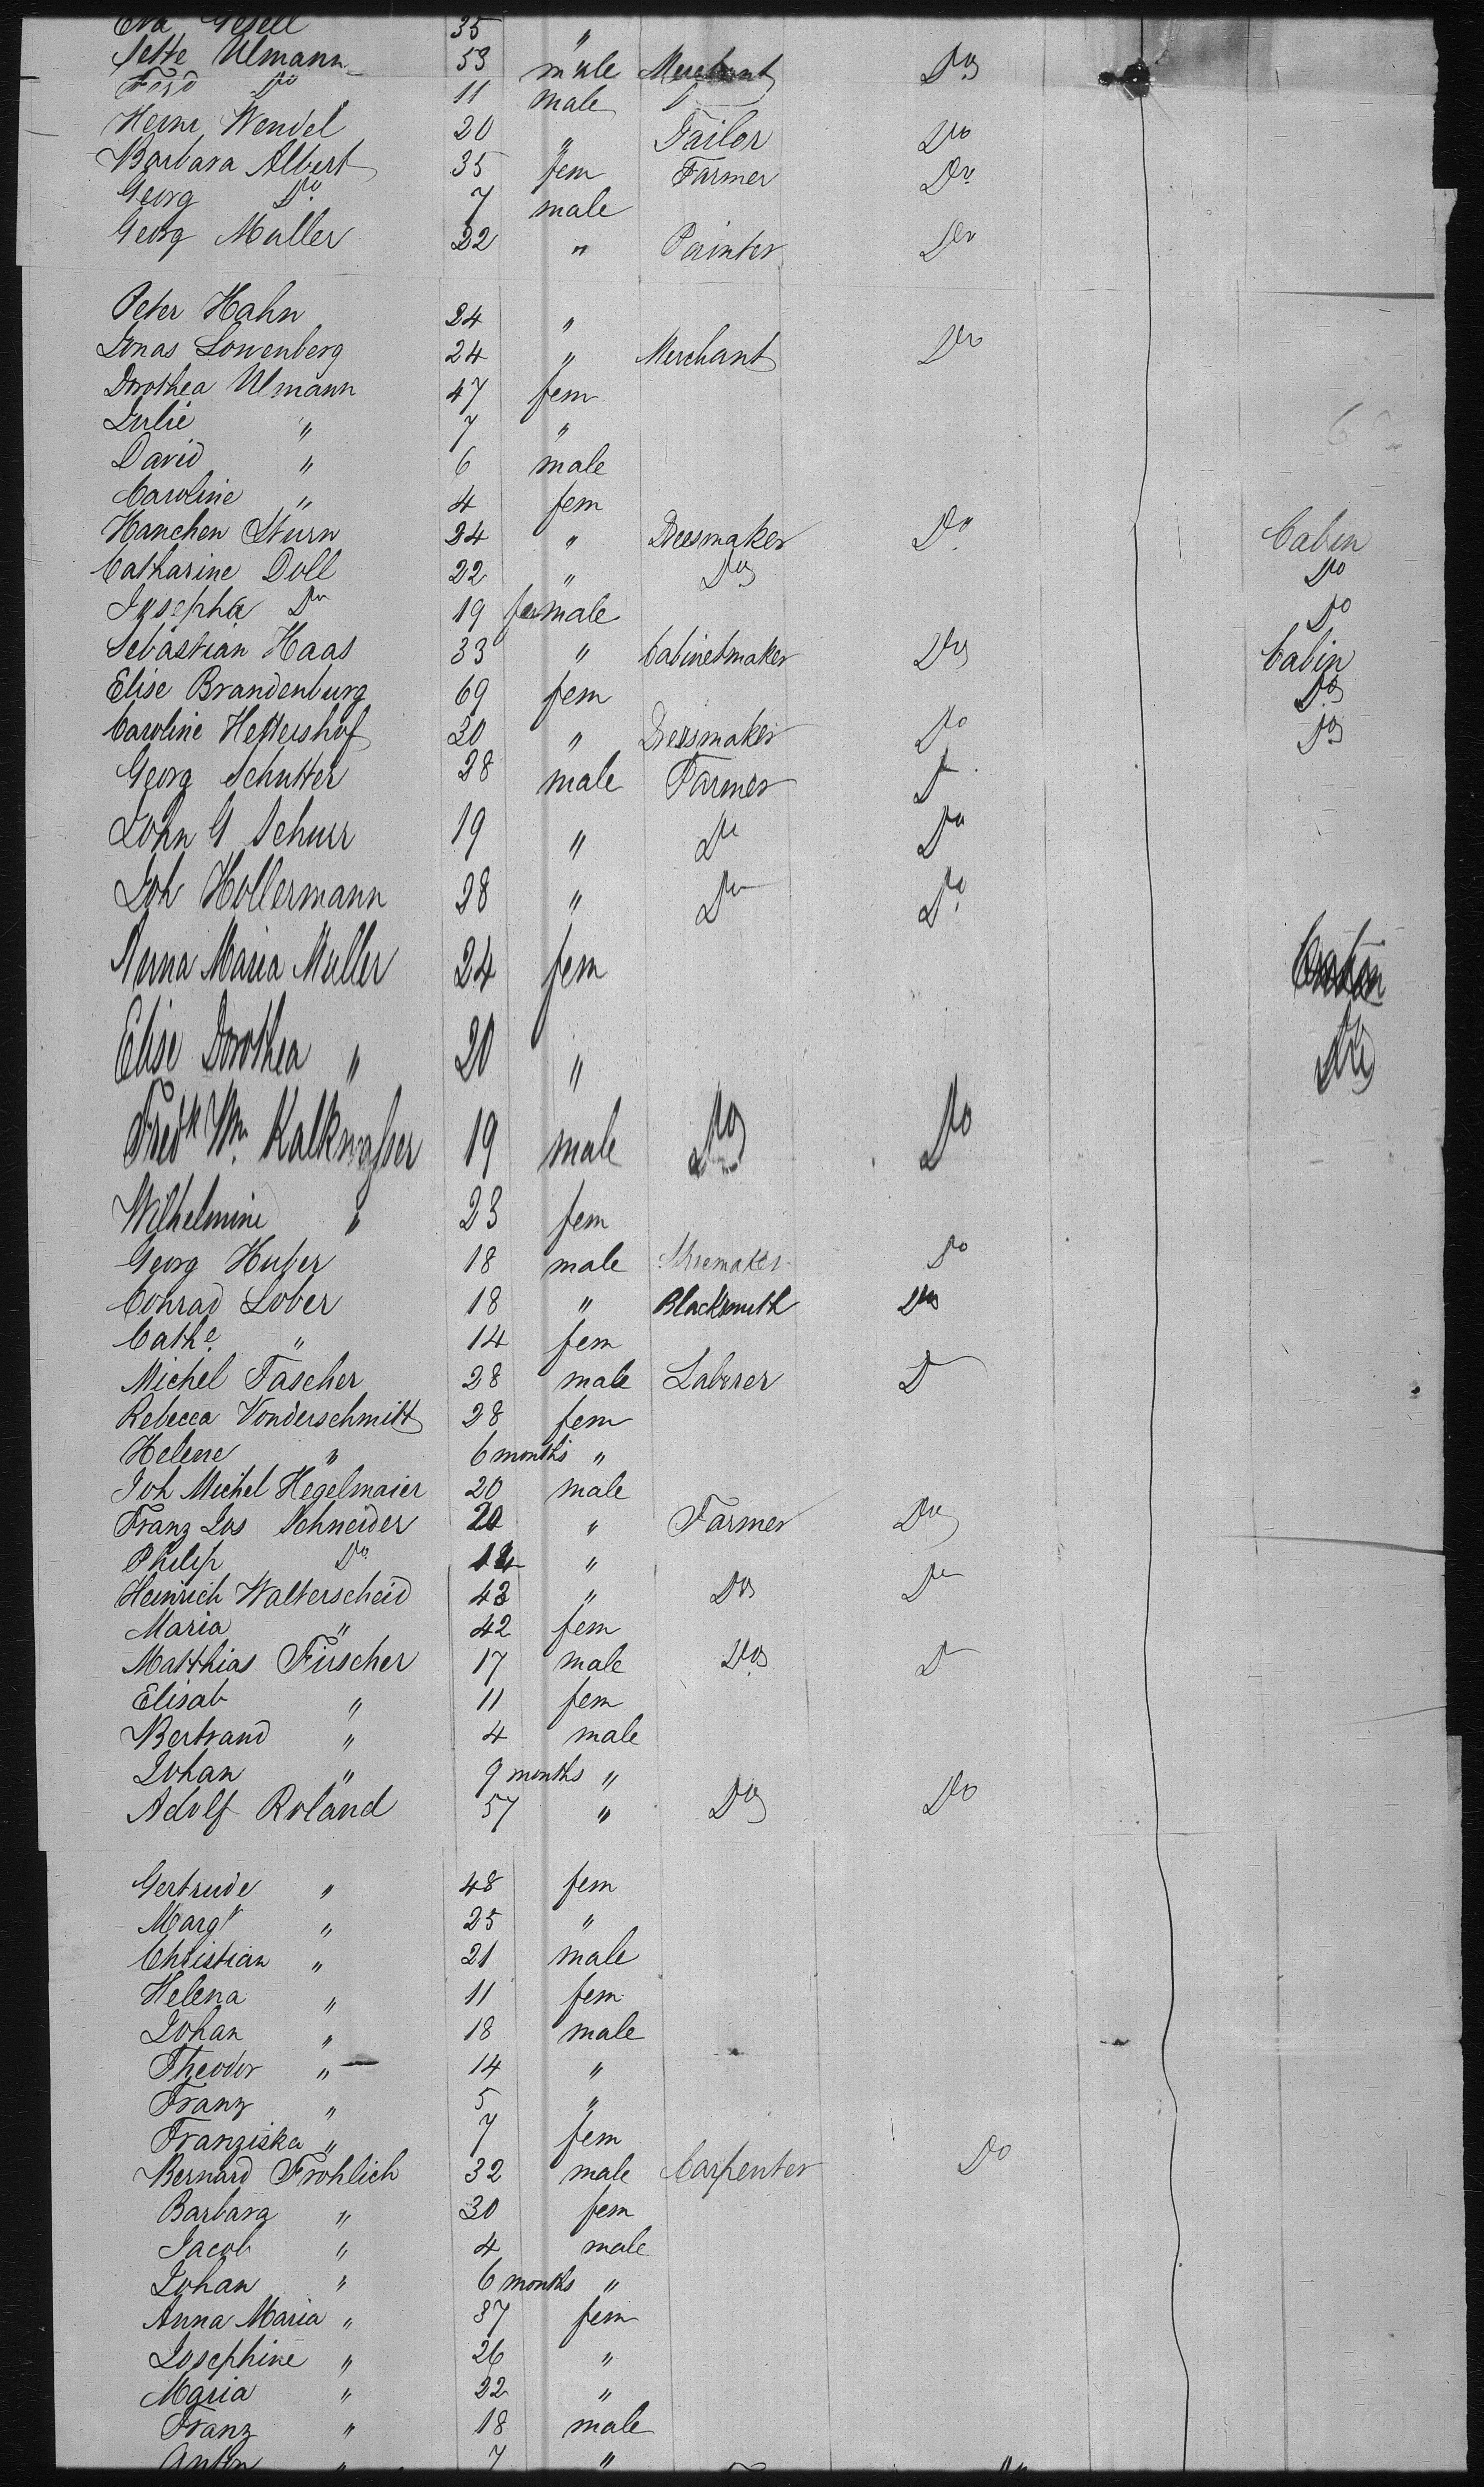 Eva Gesell 35 "
Jette Ulmann 53 male Merchant Do
Ferd Do 11 male "
Heinr Wendel 20 " Tailor Do
Barbara Albert 35 fem Farmer Do
Georg Do 7 male
Georg Muller 22 " Painter Do
Peter Hahn 24 "
Jonas Lowenberg 24 " Merchant Do
Dorothea Ulmann 47 fem
Julie " 7 "
David " 6 male
Caroline " 4 fem
Hanchen Sturn 24 " Dressmaker Do Cabin
Catharine Doll 22 " Do Do
Josepha Do 19 female Do
Sebastian Haas 33 " Cabinetmaker Do Cabin
Elise Brandenburg 69 fem Do
Caroline Hettershof 30 " Dressmaker Do Do
Georg Schutter 28 male Farmer D
John G Schurr 19 " Do Do
Joh Hollermann 28 " Do Do
Anna Maria Muller 24 fem
Elise Dorothea " 20 " Do
Fredk Wm. Kalkwasser 19 male Do Do
Wilhelmine " 23 fem
Georg Huber 18 male Shoemaker Do
Conrad Lober 18 " Blacksmith Do
Cathe " 14 fem
Michel Fascher 28 male Laborer D
Rebecca Vonderschmitt 28 fem
Helene " 6 months "
Joh Michel Hegelmaier 20 male
Franz Jos Schneider 20 " Farmer Do
Philip Do "
Heinrich Walterscheid 43 " Do Do
Maria " 42 fem
Matthias Fürscher 17 male Do D
Elisab " 11 fem
Bertrand " 4 male
Johan " 9 months "
Adolf Roland 57 " Do Do
Gertrude " 48 fem
Margt " 25 "
Christian " 21 male
Helena " 11 fem
Johan " 18 male
Theodor " 14 "
Franz " 5 "
Franziska " 7 fem
Bernard Frohlich 32 male Carpenter Do
Barbara " 30 fem
Jacob " 4 male
Johan " 6 months "
Anna Maria " 37 fem
Josephine " 26 "
Maria " 22 "
Franz " 18 male
Anton " 7 "